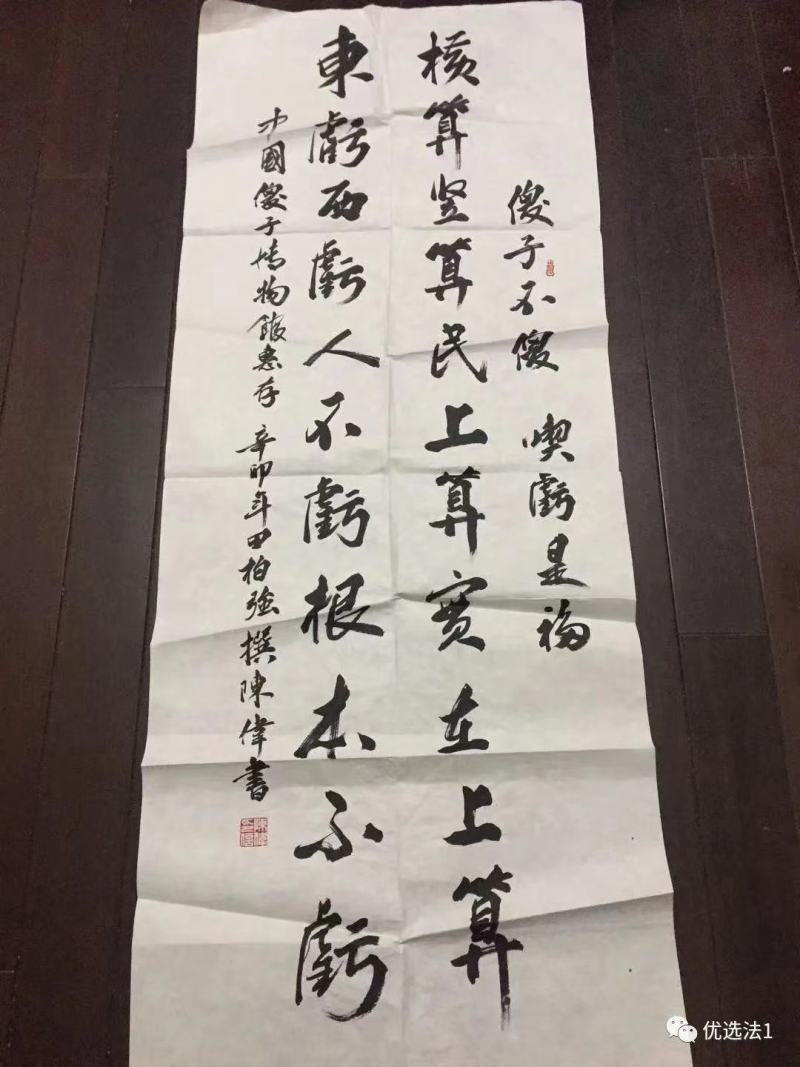 傻子不傻 喫虧是福
橫算竖算民上算實在上算
東虧西虧人不虧根本不虧
中國傻子博物館惠存 辛卯年田柏強撰陳偉書
优选法1